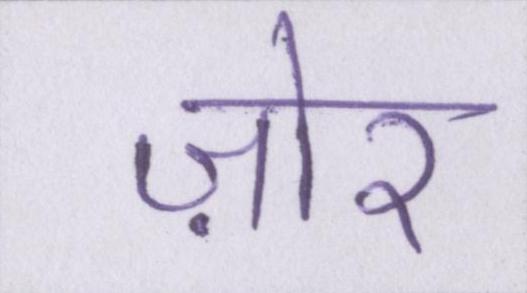 ज़ोर